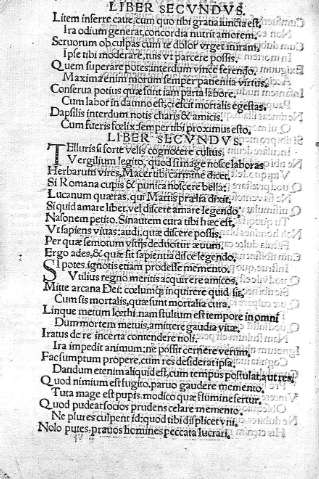 LIBER SECVNDVS.
Litem inferre caue, cum quo tibi gratia iuncta est,
Ira odium generat, concordia nutrit amorem.
Seruorum ob culpas cum te dolor vrget in iram,
Ipse tibi moderare, tuis vt parcere possis.
Quem superare potes, interdum vince ferendo,
Maxima enim morum semper patientia virtus.
Conserua potius quæ sunt iam parta labore.
Cum labor in damno est, crescit mortalis egestas.
Dapsilis interdum notis charis & amicis.
Cum fueris fœlix, semper tibi proximus esto.
LIBER SECVNDVS.
Telluris si forte velis cognoscere cultus,
Vergilium legito, quod si mage nosce laboras
Herbarum vires, Macer tibi carmine dicet.
Si Romana cupis & punica noscere bella:
Lucanum quæras, qui Martis prælia dixit.
Si quid amare libet, vel discere amare legendo
Nasonem petito. Sin autem cura tibi hæc est,
Vt sapiens viuas: audi, quæ discere possis.
Per quæ semotum vitijs deducitur æuum.
Ergo ades, & quæ sit sapientia disce legendo.
Si potes, ignotis etiam prodesse memento.
Vtilius regno meritis acquirere amicos.
Mitte arcana Dei: cœlumq; inquirere quid sit,
Cum sis mortalis, quæ sunt mortalia cura.
Linque metum lœthi: nam stultum est tempore in omni
Dum mortem metuis, amittere gaudia vitæ,
Iratus de re incerta contendere noli.
Ira impedit animum, ne possit cernere verum,
Fac sumptum propere, cum res desiderat ipsa.
Dandum etenim aliquid est, cum tempus postulat, aut res,
Quod nimium est fugito, paruo gaudere memento,
Tuta mage est pupis, modico quæ flumine fertur.
Quod pudeat socios prudens celare memento.
Ne plures culpent id: quod tibi displicet vni.
Nolo putes, prauos homines peccata lucrari.